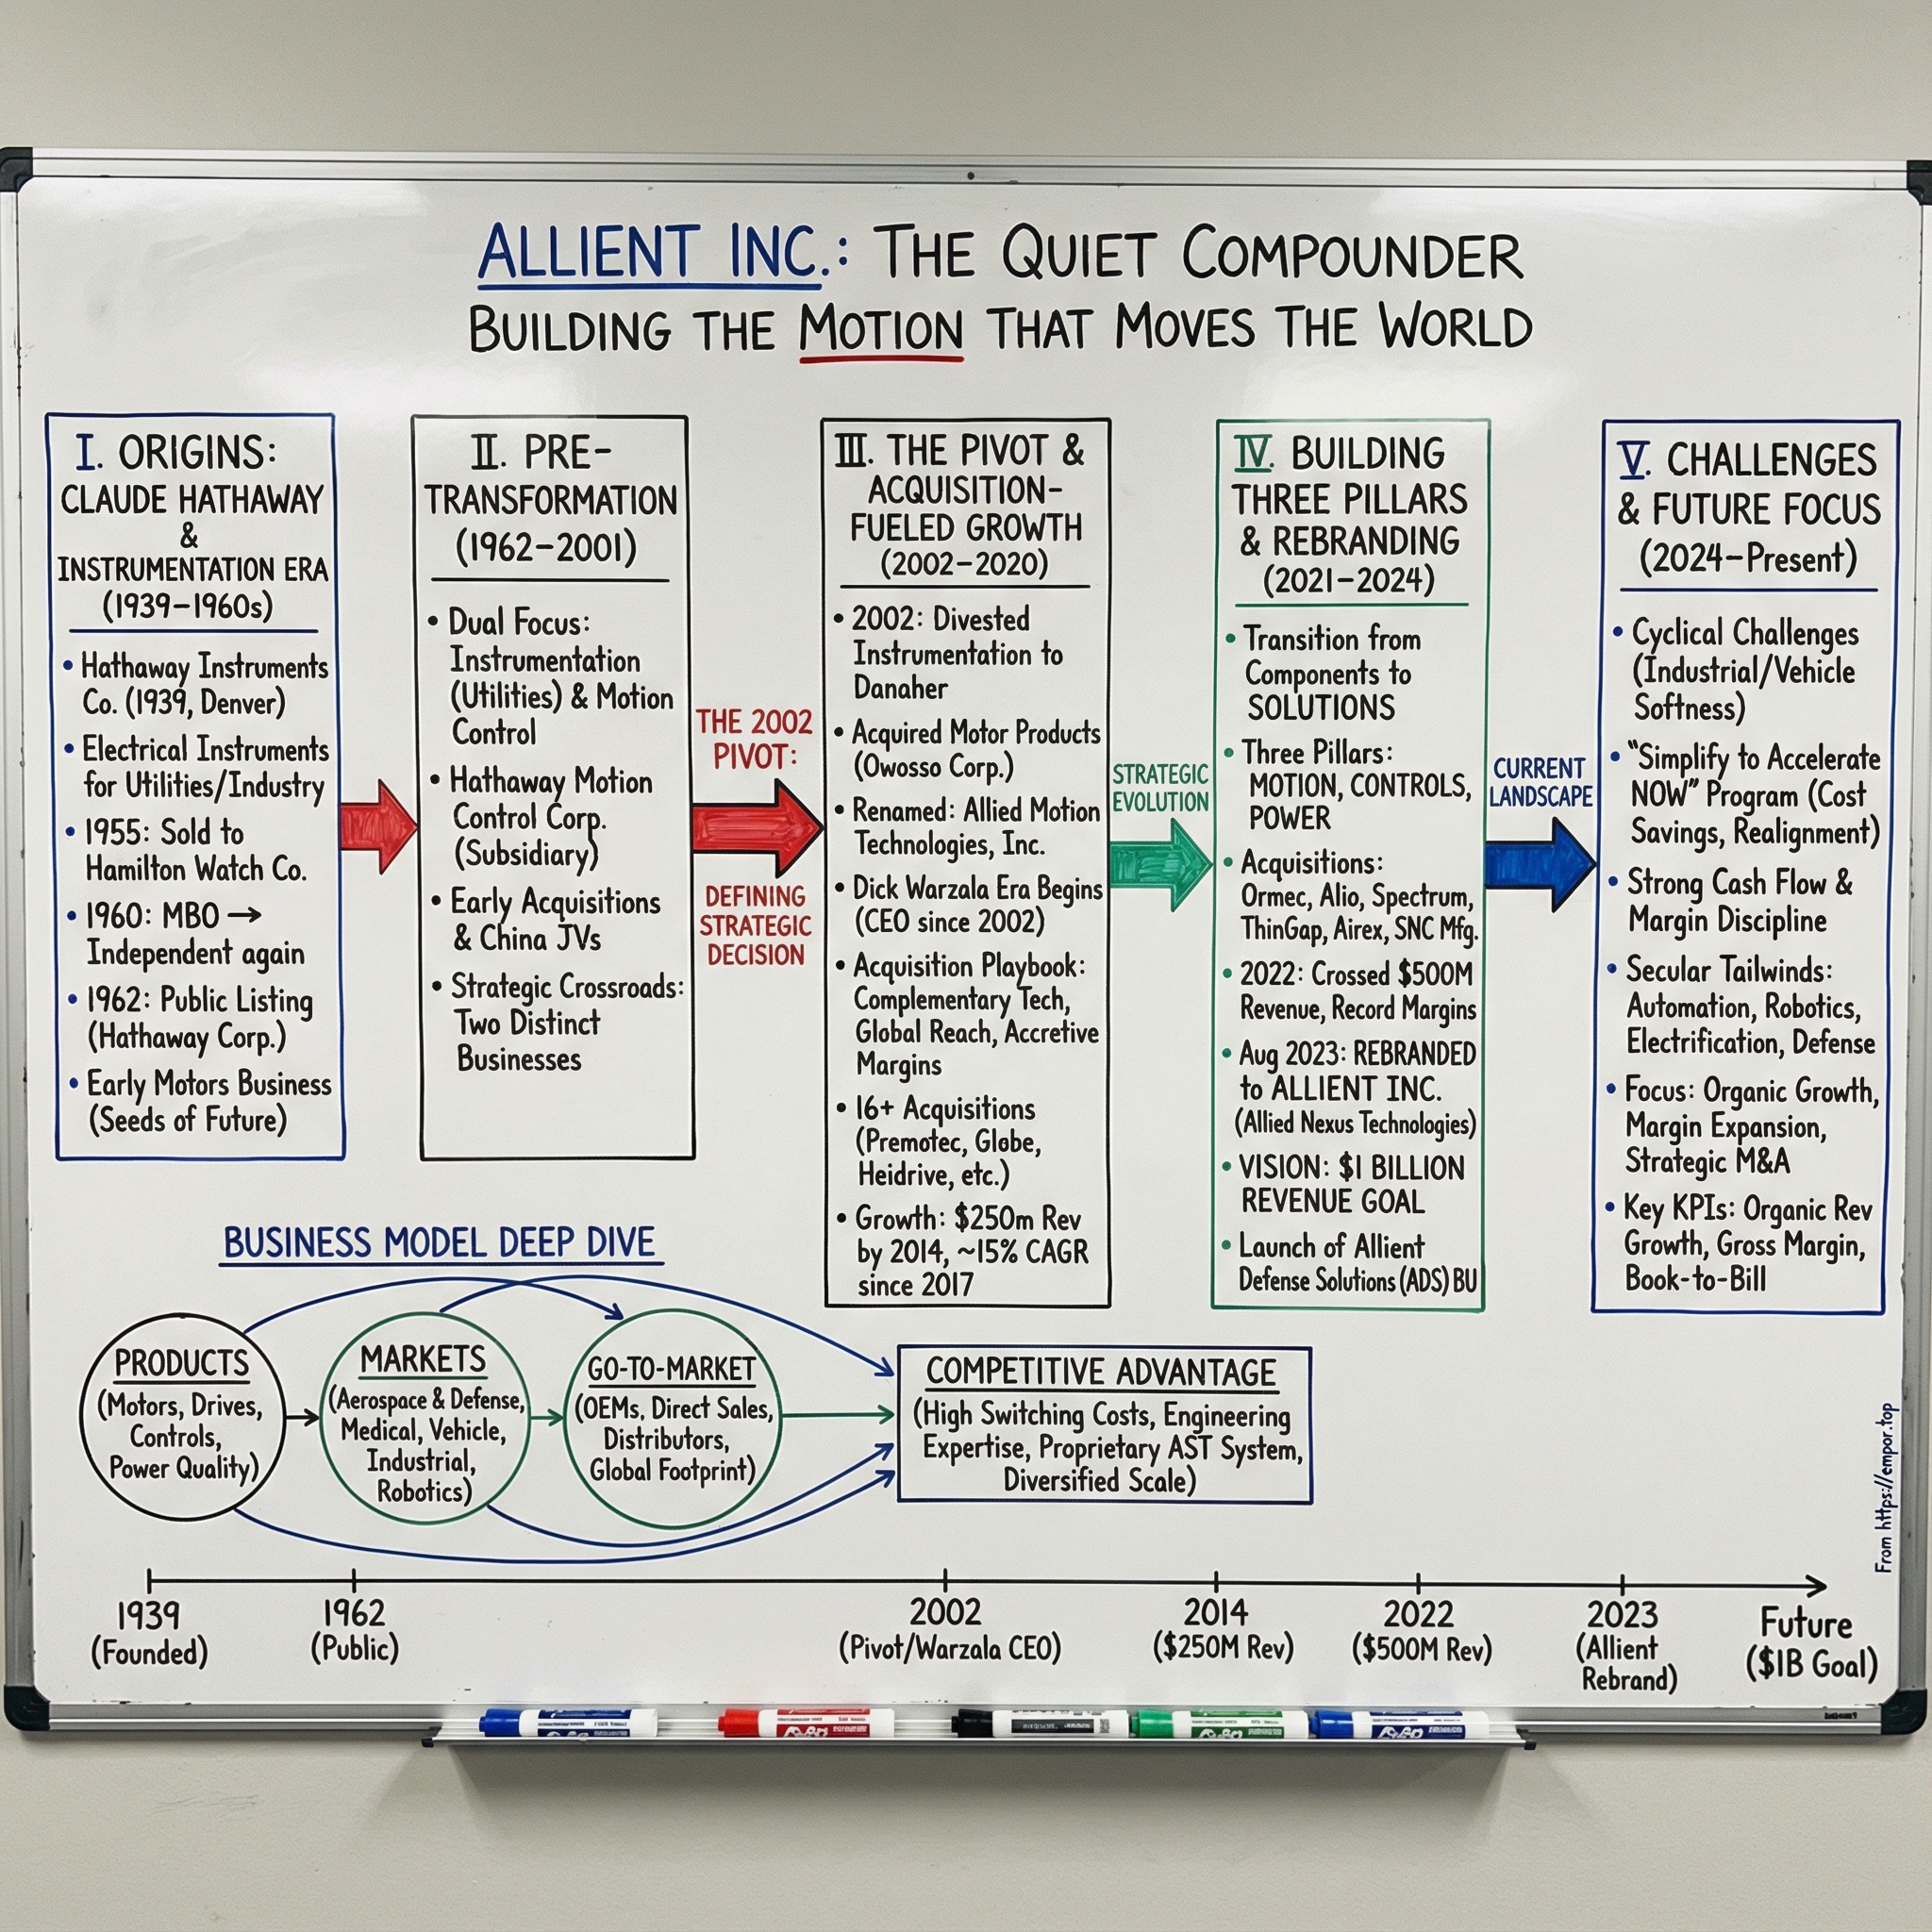 ALLIENT INC.: THE QUIET COMPOUNDER
BUILDING THE MOTION THAT MOVES THE WORLD
I. ORIGINS:
CLAUDE HATHAWAY
&
INSTRUMENTATION ERA
(1939–1960s)
• Hathaway Instruments
Co. (1939, Denver)
• Electrical Instruments
for Utilities/Industry
• 1955: Sold to
Hamilton Watch Co.
• 1960: MBO →
Independent again
• 1962: Public Listing
(Hathaway Corp.)
• Early Motors Business
(Seeds of Future)
II. PRE-
TRANSFORMATION
(1962–2001)
• Dual Focus:
Instrumentation
(Utilities) & Motion
Control
• Hathaway Motion
Control Corp.
(Subsidiary)
• Early Acquisitions
& China JVs
• Strategic Crossroads:
Two Distinct
Businesses
THE 2002
PIVOT:
DEFINING
STRATEGIC
DECISION
III. THE PIVOT &
ACQUISITION-
FUELED GROWTH
(2002–2020)
• 2002: Divested
Instrumentation to
Danaher
• Acquired Motor Products
(Owosso Corp.)
• Renamed: Allied Motion
Technologies, Inc.
• Dick Warzala Era Begins
(CEO since 2002)
• Acquisition Playbook:
Complementary Tech,
Global Reach, Accretive
Margins
• 16+ Acquisitions
(Premotec, Globe,
Heidrive, etc.)
• Growth: $250m Rev
by 2014, ~15% CAGR
since 2017
STRATEGIC
EVOLUTION
IV. BUILDING
THREE PILLARS
& REBRANDING
(2021–2024)
• Transition from
Components to
SOLUTIONS
• Three Pillars:
MOTION, CONTROLS,
POWER
• Acquisitions:
Ormec, Alio, Spectrum,
ThinGap, Airex, SNC Mfg.
• 2022: Crossed $500M
Revenue, Record Margins
• Aug 2023: REBRANDED
to ALLIENT INC.
(Allied Nexus Technologies)
• VISION: $1 BILLION
REVENUE GOAL
• Launch of Allient
Defense Solutions (ADS) BU
CURRENT
LANDSCAPE
V. CHALLENGES
& FUTURE FOCUS
(2024–Present)
• Cyclical Challenges
(Industrial/Vehicle
Softness)
• "Simplify to Accelerate
NOW" Program (Cost
Savings, Realignment)
• Strong Cash Flow &
Margin Discipline
• Secular Tailwinds:
Automation, Robotics,
Electrification, Defense
• Focus: Organic Growth,
Margin Expansion,
Strategic M&A
• Key KPIs: Organic Rev
Growth, Gross Margin,
Book-to-Bill
BUSINESS MODEL DEEP DIVE
PRODUCTS
(Motors, Drives,
Controls,
Power Quality)
MARKETS
(Aerospace & Defense,
Medical, Vehicle,
Industrial,
Robotics)
GO-TO-MARKET
(OEMs, Direct Sales,
Distributors,
Global Footprint)
COMPETITIVE ADVANTAGE
(High Switching Costs, Engineering
Expertise, Proprietary AST System,
Diversified Scale)
From https://empor.top
1939
(Founded)
1962
(Public)
2002
(Pivot/Warzala CEO)
2014
($250M Rev)
2022
($500M Rev)
2023
(Allient
Rebrand)
Future
($1B Goal)